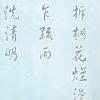 拆桐花烂漫
乍疏雨
洗清明